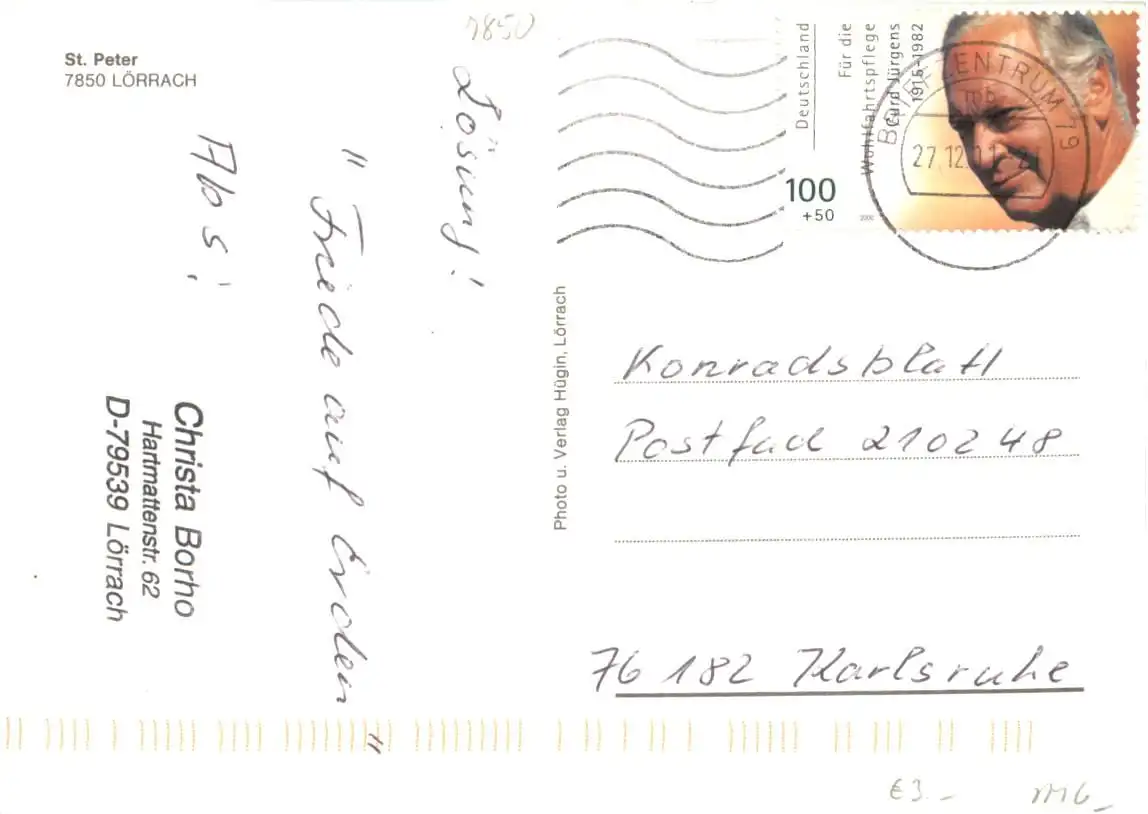 7850
St. Peter
7850 LÖRRACH
Lösung!
" Friede auf Erden "
Abs:
Christa Borho
Hartmattenstr. 62
D-79539 Lörrach
Photo u. Verlag Hügin, Lörrach
Deutschland
Für die
Wohlfahrtspflege
Curd Jürgens
1915-1982
100
+50
2000
BRIEFZENTRUM 79
mb
Konradsblatt
Postfach 210248
76182 Karlsruhe
€3.-